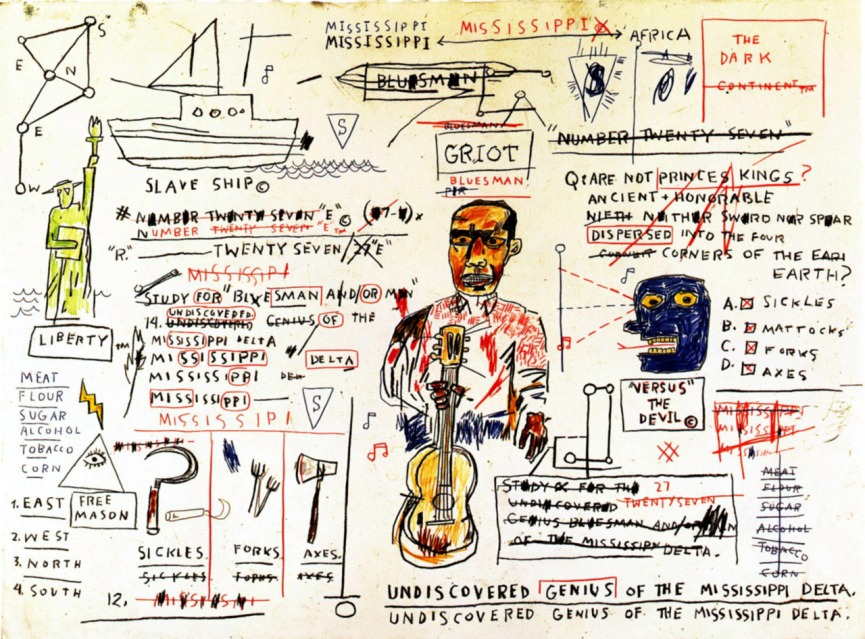 S
E
N
E
W
MISSISSIPPI
MISSISSIPPI
MISSISSIPPI
AFRICA
THE
DARK
CONTINENT™
BLUESMAN
S
BLUESMAN
GRIOT
BLUESMAN
"NUMBER TWENTY SEVEN"
SLAVE SHIP©
S
Q: ARE NOT PRINCES KINGS?
ANCIENT + HONORABLE
NIETH NEITHER SWORD NOR SPEAR
DISPERSED INTO THE FOUR
CORNER CORNERS OF THE EAR
EARTH?
A. SICKLES
B. MATTOCKS
C. FORKS
D. AXES
# NUMBER TWENTY SEVEN "E"©
NUMBER TWENTY SEVEN "E"™
"R." TWENTY SEVEN/27"E"
MISSISSIPPI
STUDY FOR "BLUESMAN AND/OR MAN"
UNDISCOVERED
14. UNDISCOVERED GENIUS OF THE
MISSISSIPPI DELTA
MISSISSIPPI DELTA
MISSISSIPPI
MISSISSIPPI
MISSISSIPPI
S
LIBERTY™
MEAT
FLOUR
SUGAR
ALCOHOL
TOBACCO
CORN
1. EAST
2. WEST
3. NORTH
4. SOUTH
FREE
MASON
SICKLES.
SICKLES
FORKS.
FORKS.
AXES.
AXES
12. MISSISSIPPI
"VERSUS"
THE
DEVIL©
MISSISSIPPI
MISSISSIPPI
MEAT
FLOUR
SUGAR
ALCOHOL
TOBACCO
CORN
STUDY FOR THE 27
UNDISCOVERED TWENTYSEVEN
GENIUS BLUESMAN AND/OR MAN
OF THE MISSISSIPPI DELTA.
UNDISCOVERED GENIUS OF THE MISSISSIPPI DELTA.
UNDISCOVERED GENIUS OF THE MISSISSIPPI DELTA.